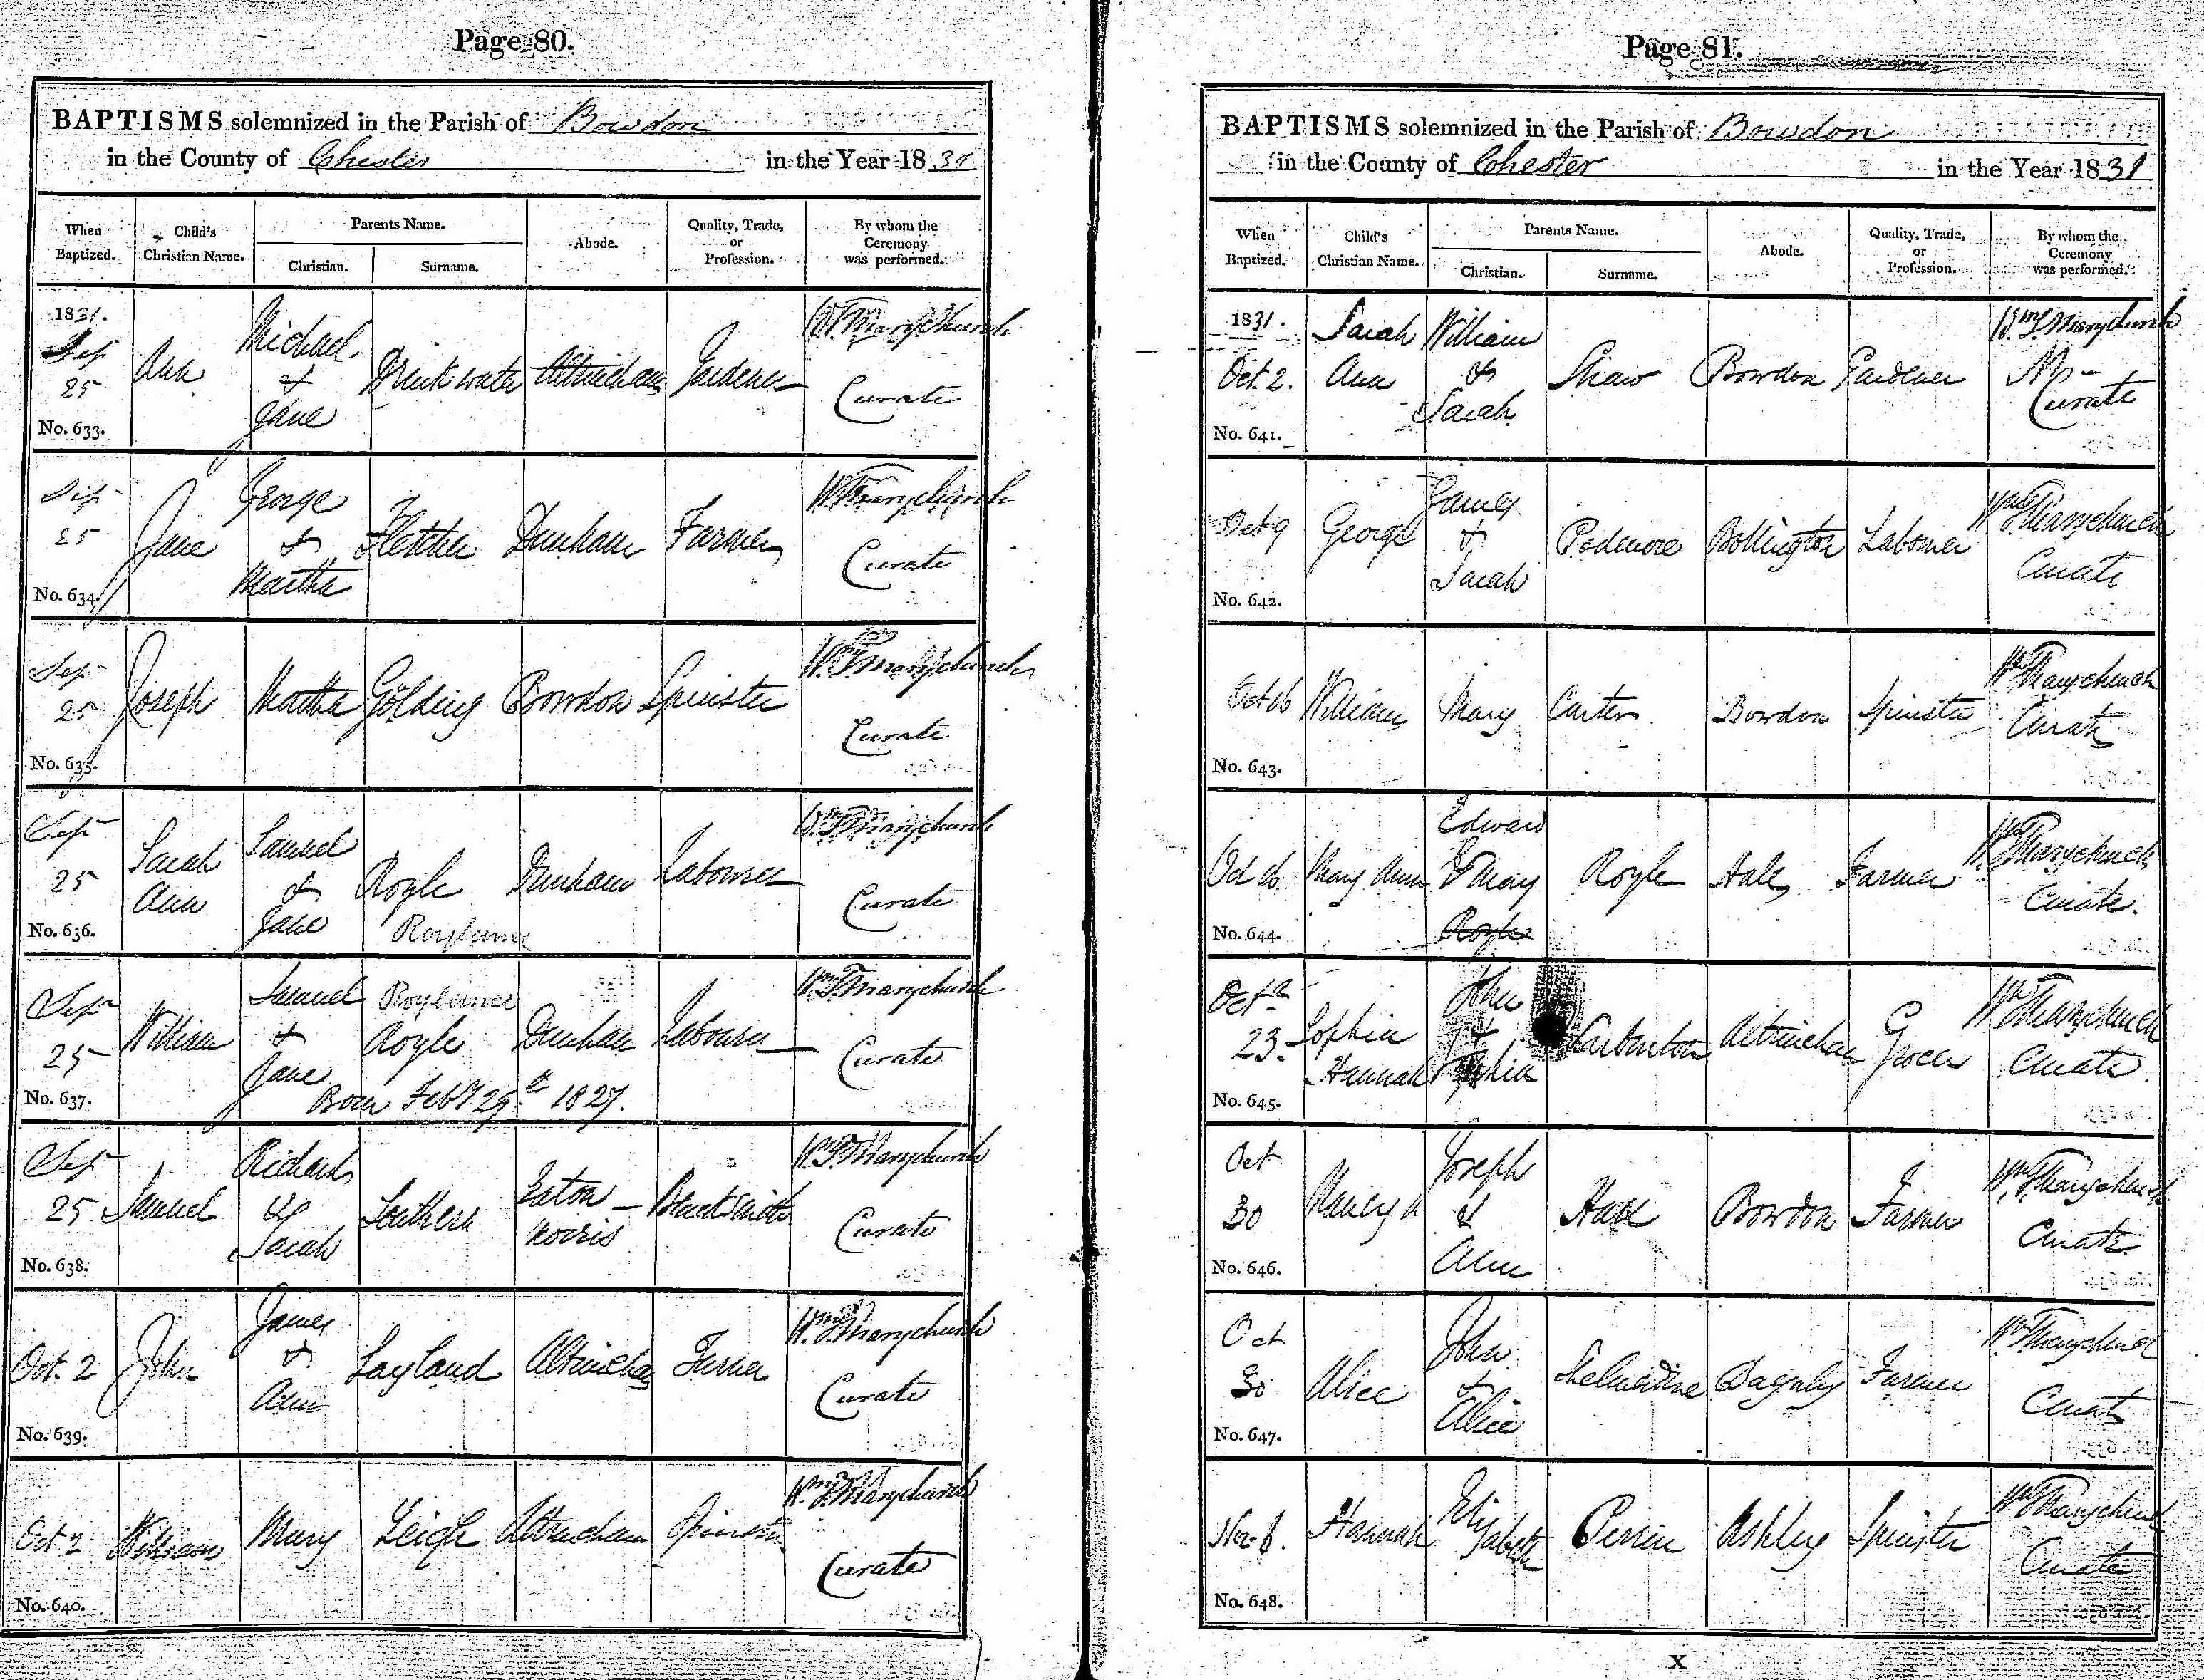 Page 80.
BAPTISMS solemnized in the Parish of Bowdon
in the County of Chester in the Year 1831
When Baptized. Child's Christian Name. Parents Name. Christian. Surname. Abode. Quality, Trade, or Profession. By whom the Ceremony was performed.
1831. Sep 25 Ann Michael & Jane Drinkwater Altrincham Gardener Wm. F. Marychurch Curate
No. 633.
Sep 25 Jane George & Martha Fletcher Dunham Farmer Wm. F. Marychurch Curate
No. 634.
Sep 25 Joseph Martha Golding Bowdon Spinster Wm. F. Marychurch Curate
No. 635.
Sep 25 Sarah Ann Samuel & Jane Royle Roylance Dunham Labourer Wm. F. Marychurch Curate
No. 636.
Sep 25 William Samuel & Jane Roylance Royle Dunham Labourer Wm. F. Marychurch Curate
Born Feby 29th 1827.
No. 637.
Sep 25 Samuel Richard & Sarah Southern Eaton Norris Blacksmith Wm. F. Marychurch Curate
No. 638.
Oct. 2 John James & Ann Layland Altrincham Wm. F. Marychurch Curate
No. 639.
Oct 2 William Mary Leigh Altrincham Spinster Wm. F. Marychurch Curate
No. 640.
Page 81.
BAPTISMS solemnized in the Parish of Bowdon
in the County of Chester in the Year 1831
When Baptized. Child's Christian Name. Parents Name. Christian. Surname. Abode. Quality, Trade, or Profession. By whom the Ceremony was performed.
1831. Oct. 2. Sarah Ann William & Sarah Shaw Bowdon Gardener Wm. F. Marychurch Curate
No. 641.
Oct 9 George James & Sarah Podmore Bollington Labourer Wm. F. Marychurch Curate
No. 642.
Oct 16 William Mary Carter Bowdon Spinster Wm. F. Marychurch Curate
No. 643.
Oct 16 Mary Ann Edward & Mary Royle Royle Hale Farmer Wm. F. Marychurch Curate
No. 644.
Oct 23. Sophia Hannah John & Sophia Warburton Altrincham Grocer Wm. F. Marychurch Curate
No. 645.
Oct 30 Nancy Joseph & Ann Bowdon Farmer Wm. F. Marychurch Curate
No. 646.
Oct 30 Alice John & Alice Shelmerdine Baguley Farmer Wm. F. Marychurch Curate
No. 647.
Nov. 6. Hannah Elizabeth Perrin Ashley Spinster Wm. F. Marychurch Curate
No. 648.
X